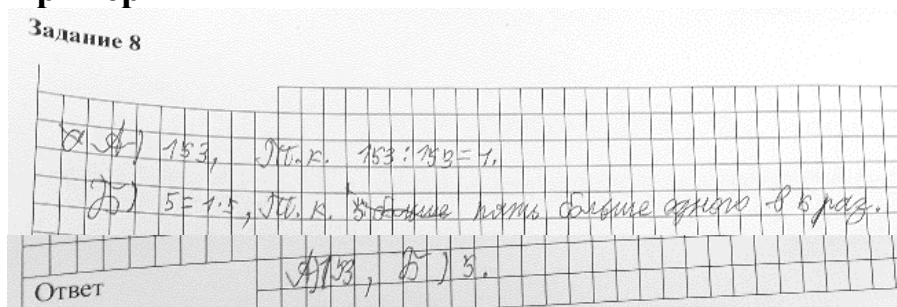 Задание 8
А) 153, т.к. 153:153=1.
Б) 5=1·5, т.к. пять больше одного в 5 раз.
Ответ
А) 153, Б) 5.